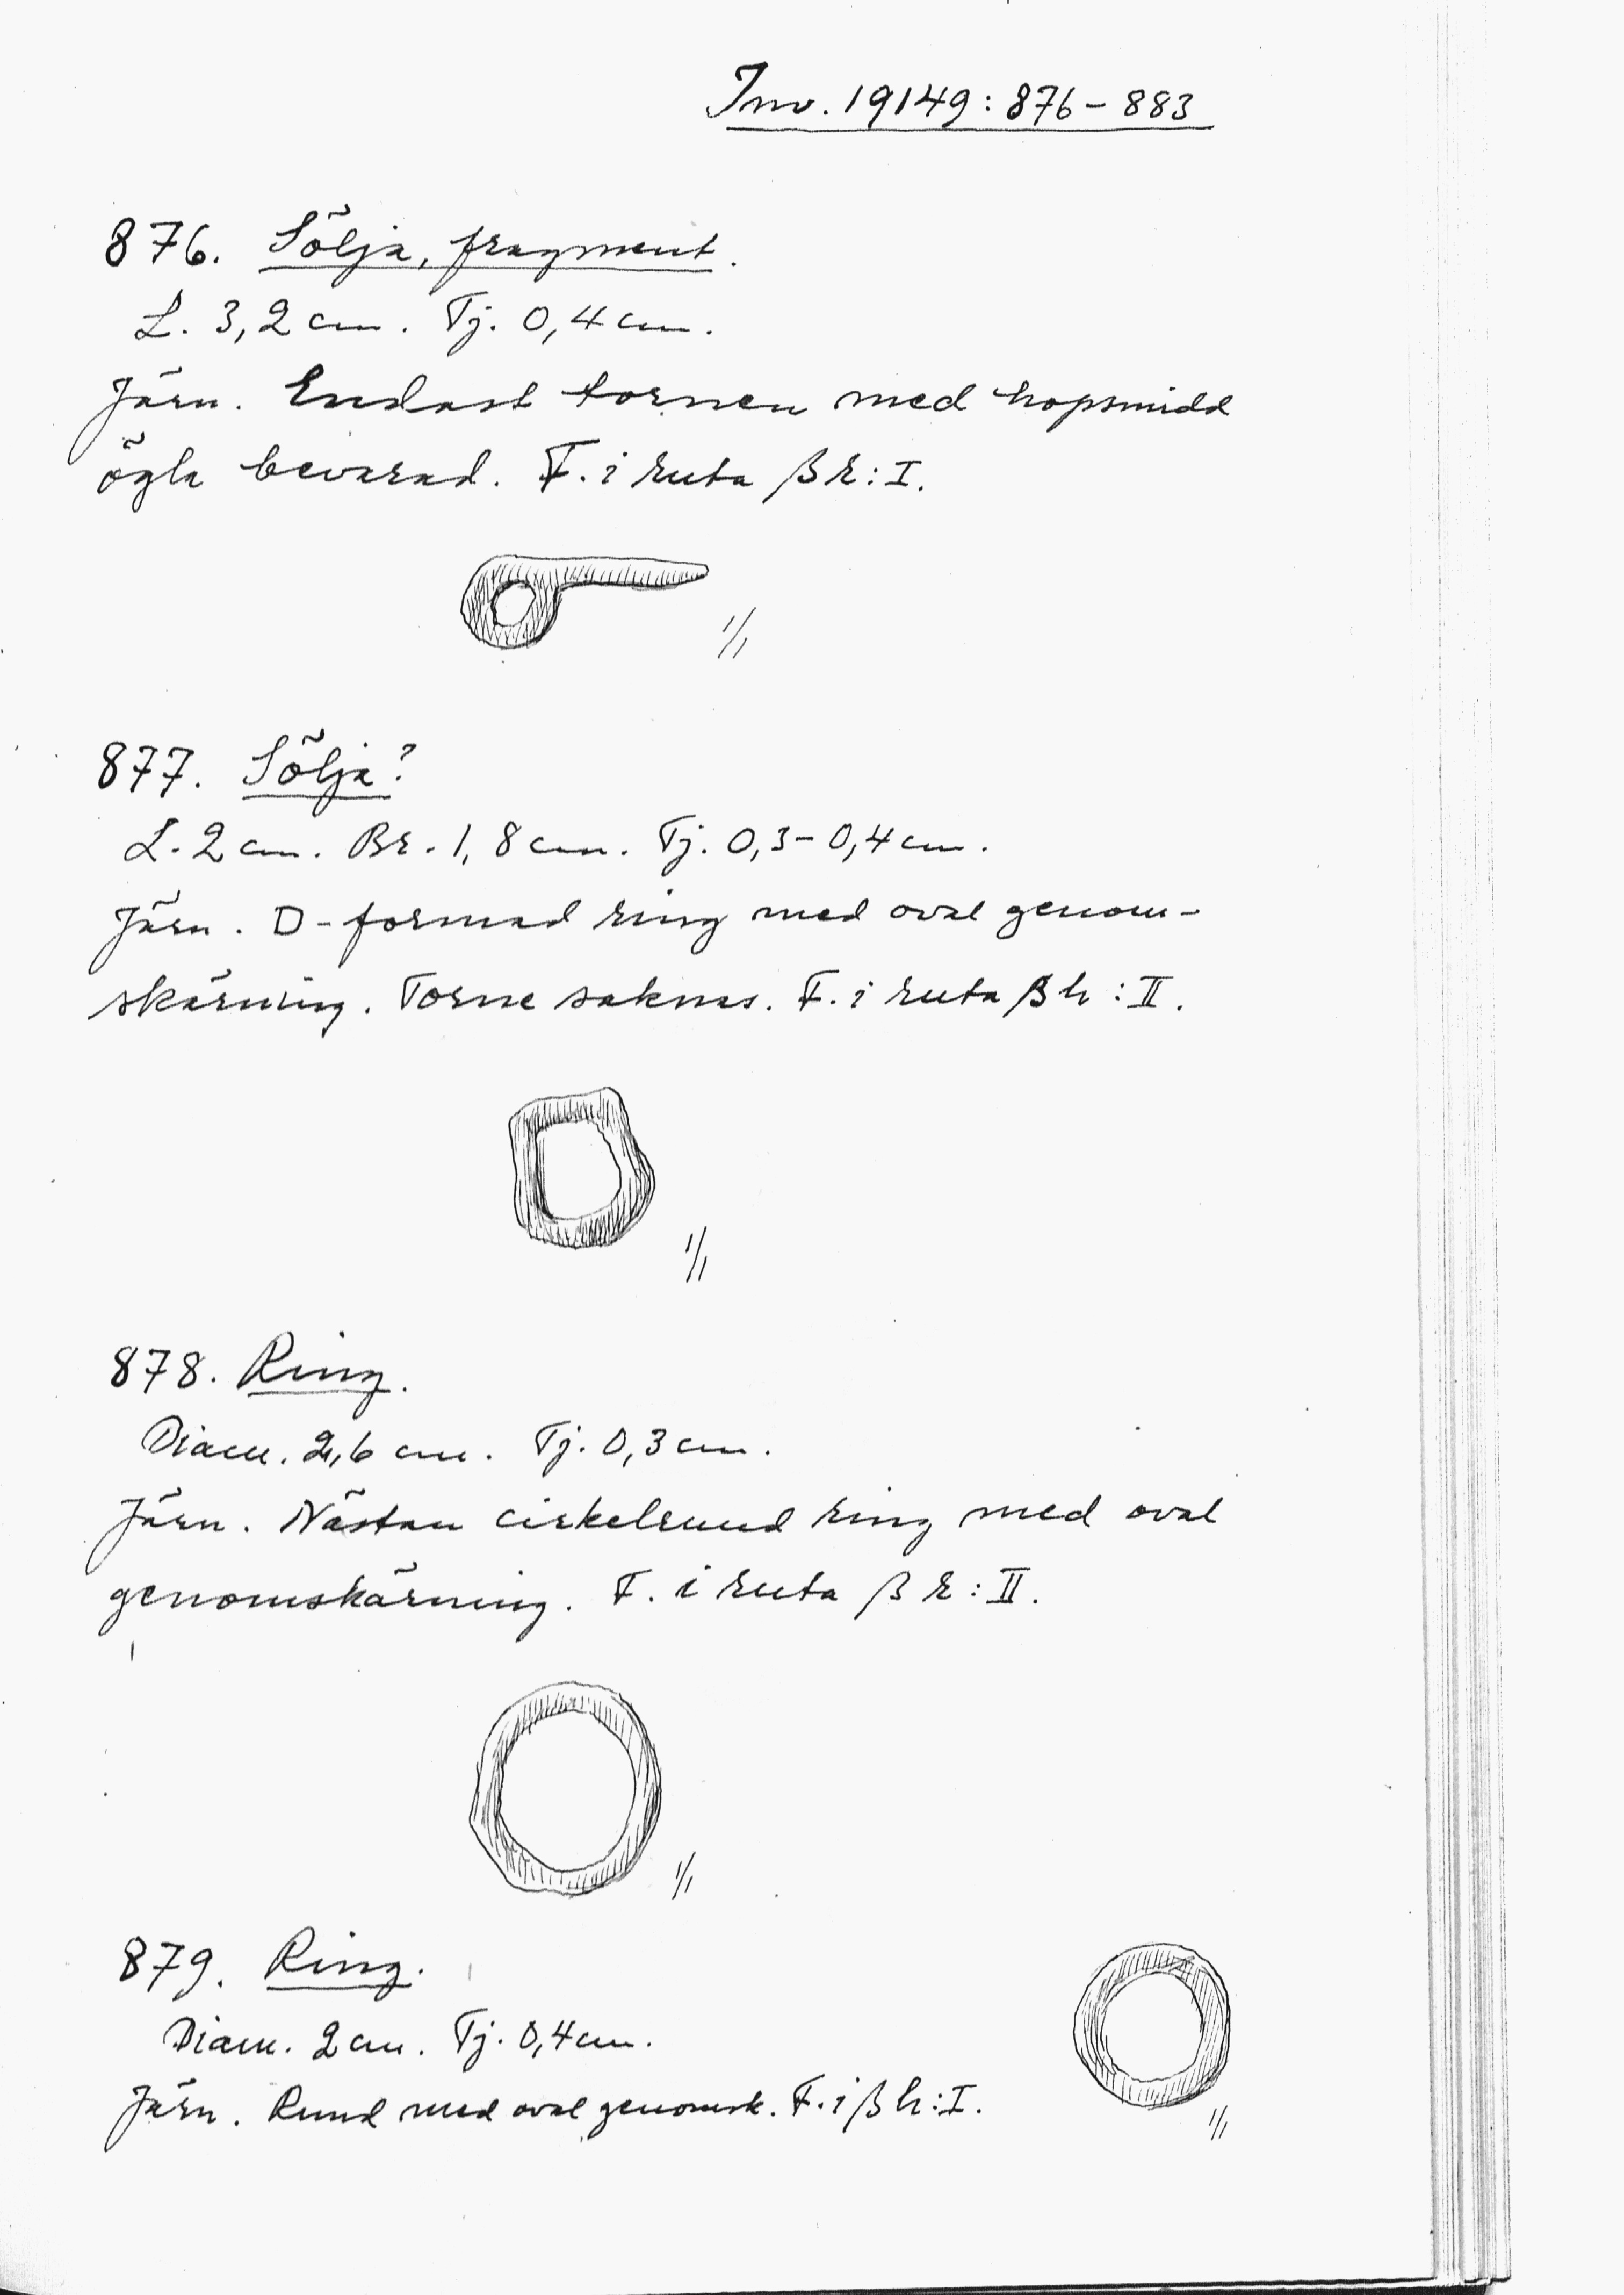 Inv. 19149: 876-883
876. Sölja, fragment.
L. 3,2 cm. Tj. 0,4 cm.
Järn. Endast tornen med hopsmidd
ögla bevarad. F. i ruta β r: I.
1/1
877. Sölja?
L. 2 cm. Br. 1,8 cm. Tj. 0,3-0,4 cm.
Järn. D-formad ring med oval genom-
skärning. Torne saknas. F. i ruta β h: II.
1/1
878. Ring.
Diam. 2,6 cm. Tj. 0,3 cm.
Järn. Nästan cirkelrund ring med oval
genomskärning. F. i ruta β r: II.
1/1
879. Ring.
Diam. 2 cm. Tj. 0,4 cm.
Järn. Rund med oval genomsk. F. i β h: I.
1/1